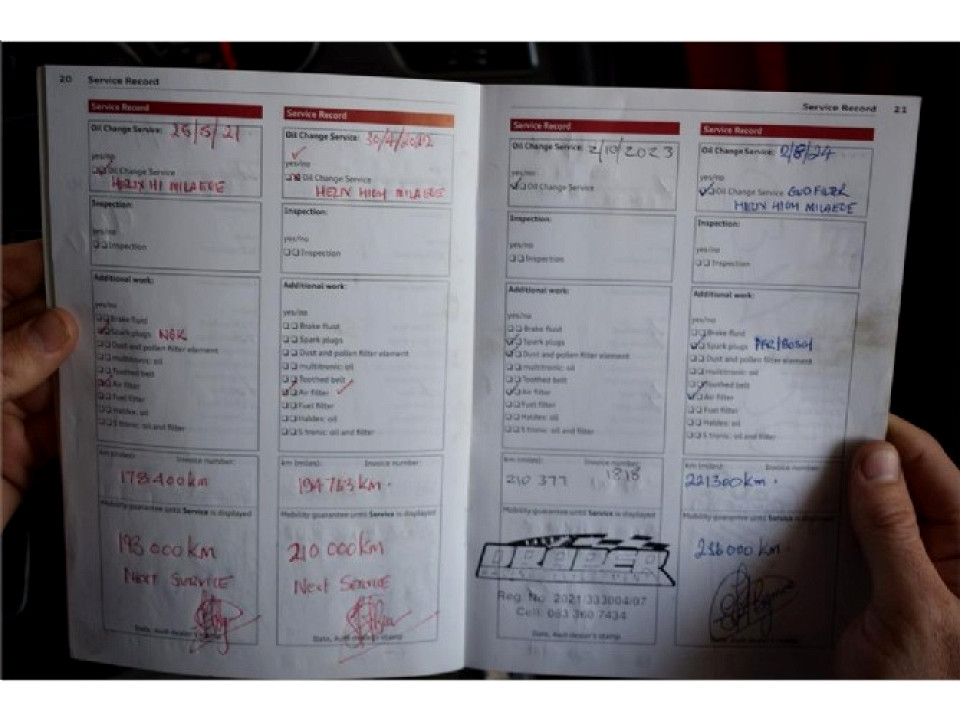 20 Service Record
Service Record
Oil Change Service: 25/5/21
yes/no
Oil Change Service
HELIX HI MILAEGE
Inspection:
yes/no
Inspection
Additional work:
yes/no
Brake fluid
Spark plugs NGK
Dust and pollen filter element
multitronic: oil
Toothed belt
Air filter
Fuel filter
Haldex: oil
S tronic: oil and filter
km (miles): Invoice number:
178400km
Mobility guarantee until Service is displayed
193 000 km
NEXT SERVICE
Date, Audi dealer's stamp
Service Record
Oil Change Service: 30/4/2022
yes/no
Oil Change Service
HELIX HIGH MILAEGE
Inspection:
yes/no
Inspection
Additional work:
yes/no
Brake fluid
Spark plugs
Dust and pollen filter element
multitronic: oil
Toothed belt
Air filter
Fuel filter
Haldex: oil
S tronic: oil and filter
km (miles): Invoice number:
194 743 KM.
Mobility guarantee until Service is displayed
210 000km
Next SERVICE
Date, Audi dealer's stamp
Service Record 21
Service Record
Oil Change Service: 2/10/2023
yes/no
Oil Change Service
Inspection:
yes/no
Inspection
Additional work:
yes/no
Brake fluid
Spark plugs
Dust and pollen filter element
multitronic: oil
Toothed belt
Air filter
Fuel filter
Haldex: oil
S tronic: oil and filter
km (miles): Invoice number:
210 377 1818
Mobility guarantee until Service is displayed
DRAPER
Reg. No. 2021/333004/07
Cell: 083 360 7434
Date, Audi dealer's stamp
Service Record
Oil Change Service: 2/8/24
yes/no
Oil Change Service
HELIX HIGH MILAEGE
Inspection:
yes/no
Inspection
Additional work:
yes/no
Brake fluid
Spark plugs
Dust and pollen filter element
multitronic: oil
Toothed belt
Air filter
Fuel filter
Haldex: oil
S tronic: oil and filter
km (miles): Invoice number:
221300km.
Mobility guarantee until Service is displayed
236000 km.
Date, Audi dealer's stamp